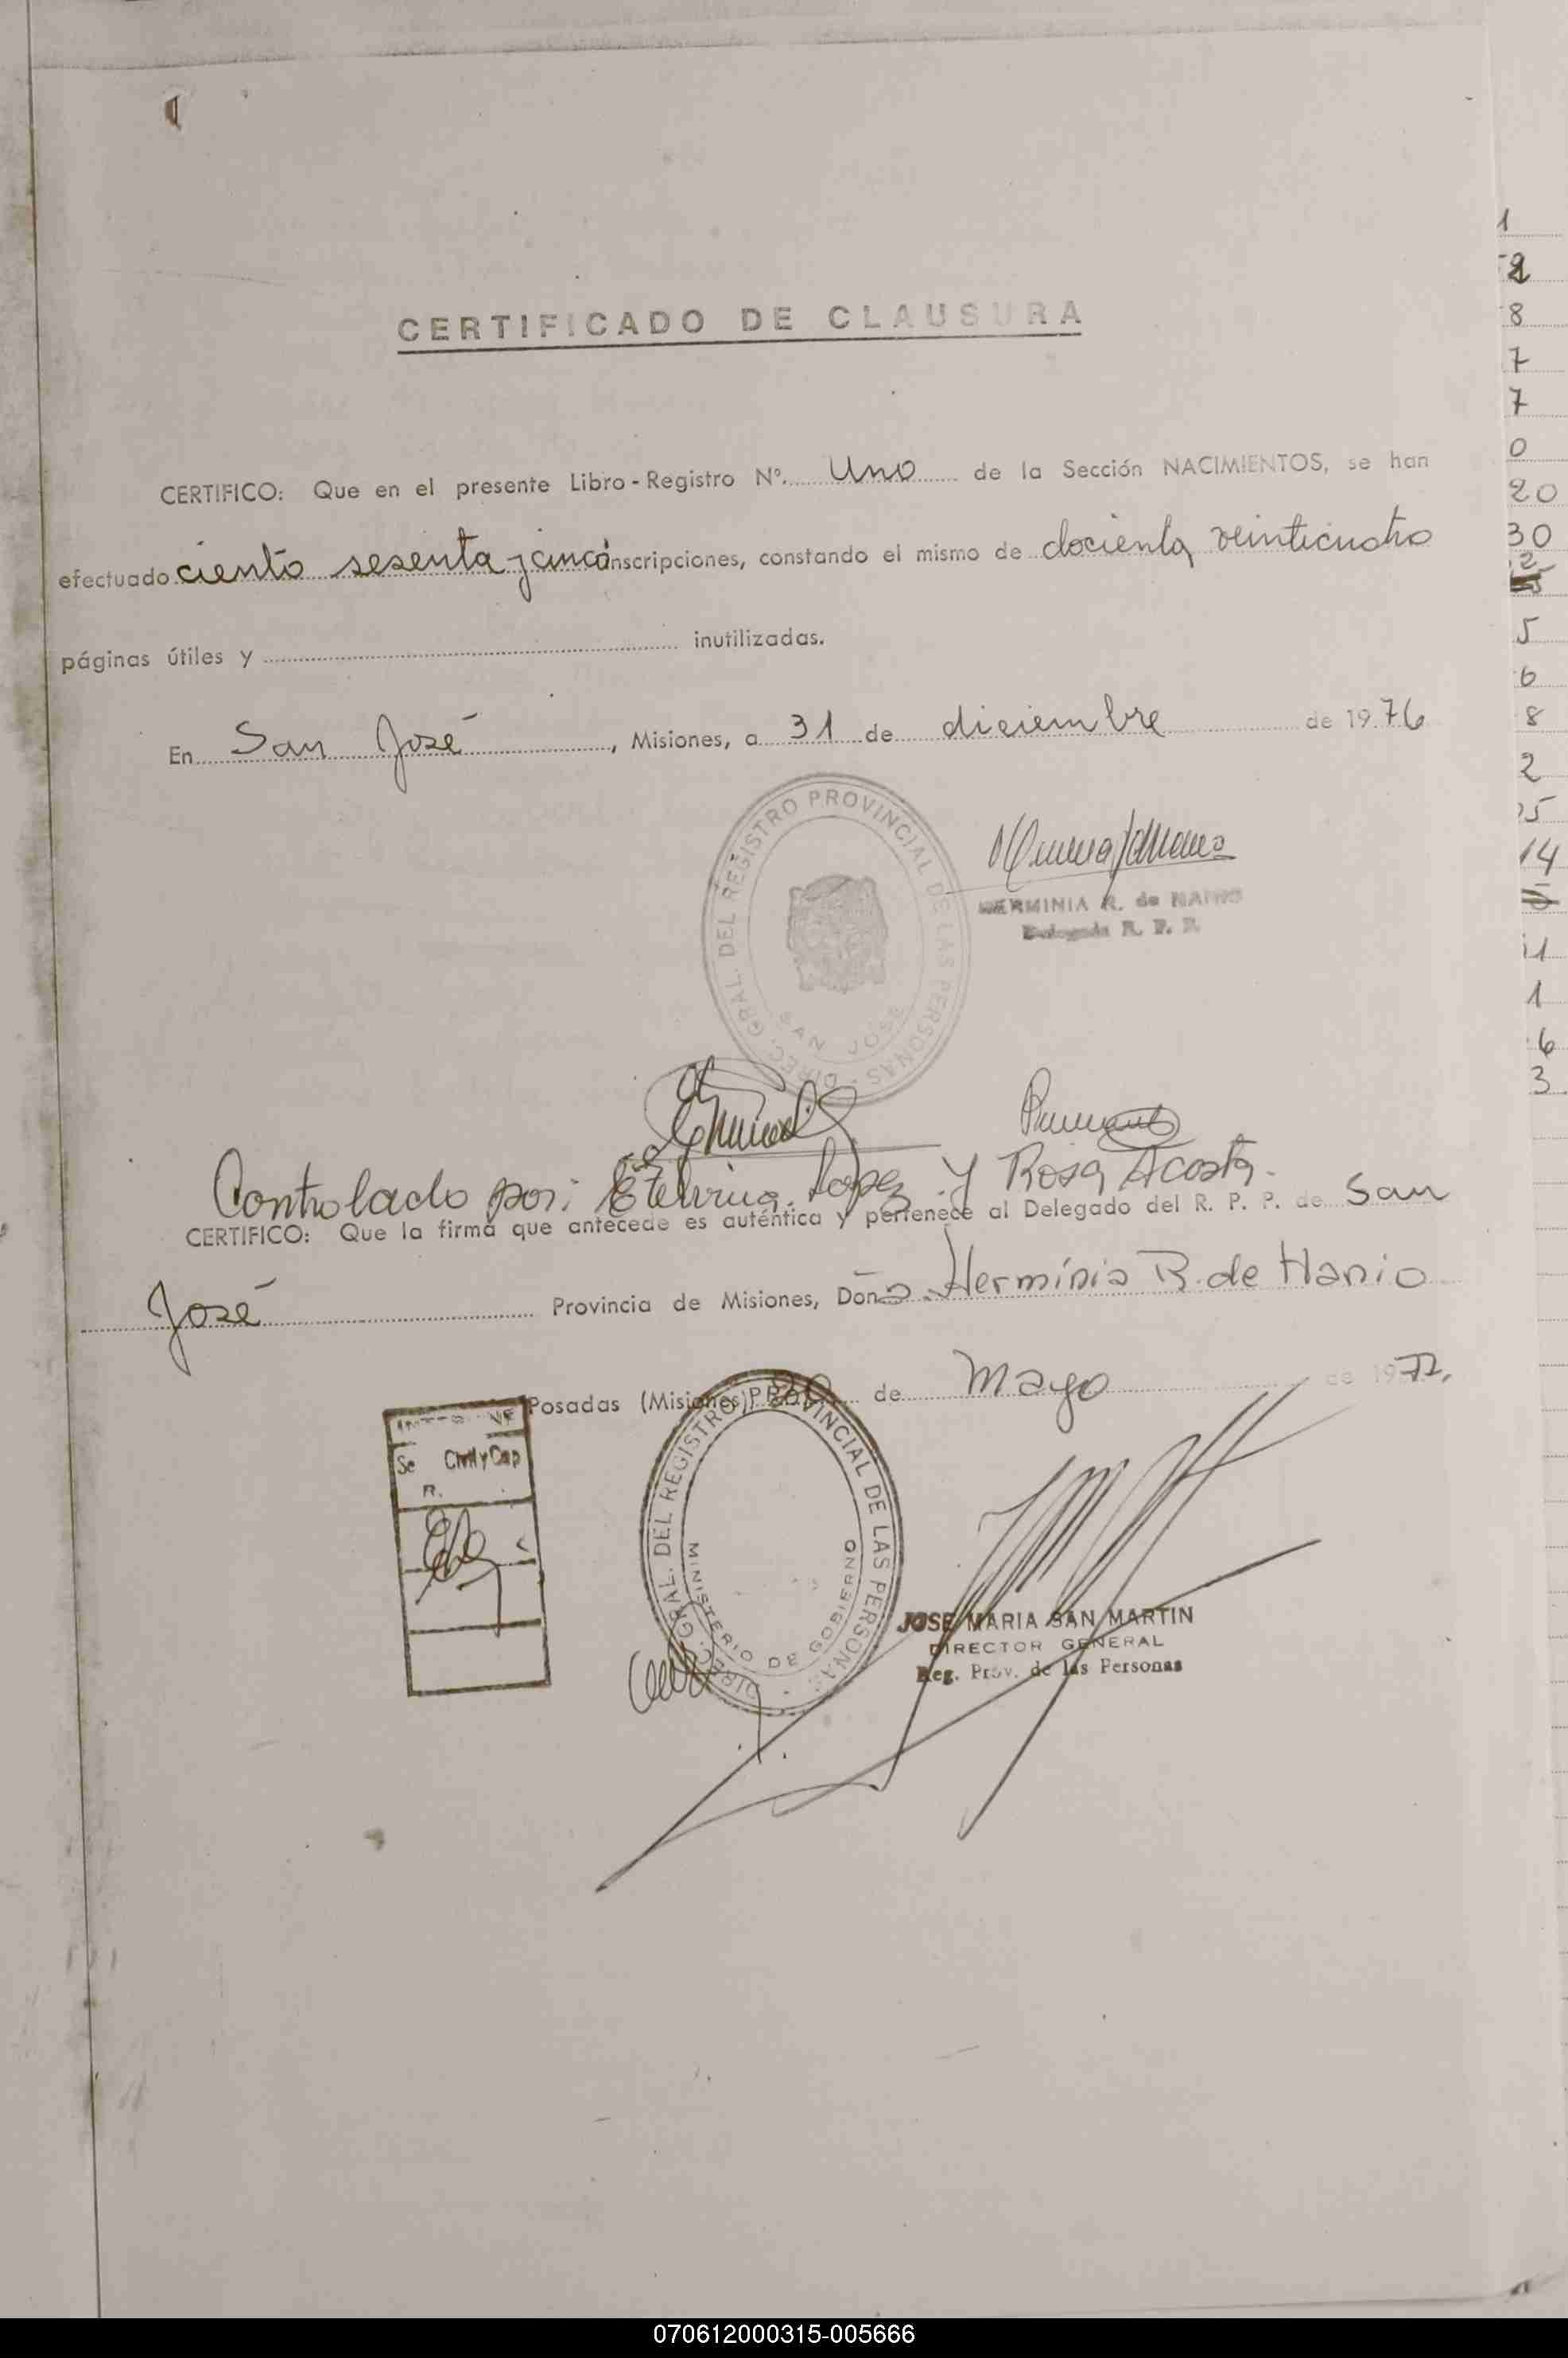 CERTIFICADO DE CLAUSURA
CERTIFICO: Que en el presente Libro-Registro Nº. Uno de la Sección NACIMIENTOS, se han
efectuado ciento sesenta y cinco inscripciones, constando el mismo de docienta veinticuatro
páginas útiles y inutilizadas.
En San José, Misiones, a 31 de diciembre de 1976
DIREC. GRAL. DEL REGISTRO PROVINCIAL DE LAS PERSONAS
SAN JOSE
HERMINIA R. de
Delegada R. P. P.
Controlado por: Etelvina Lopez y Rosa Acosta.
CERTIFICO: Que la firma que antecede es auténtica y pertenece al Delegado del R. P. P. de San
José Provincia de Misiones, Doña Herminia R. de Hanio
Posadas (Misiones), 20 de Mayo de 1977.
Civil y Cap
DIREC. GRAL. DEL REGISTRO PROVINCIAL DE LAS PERSONAS
MINISTERIO DE GOBIERNO
JOSE MARIA SAN MARTIN
DIRECTOR GENERAL
Reg. Prov. de las Personas
1
8
7
7
0
20
30
5
6
8
2
14
1
6
3
070612000315-005666